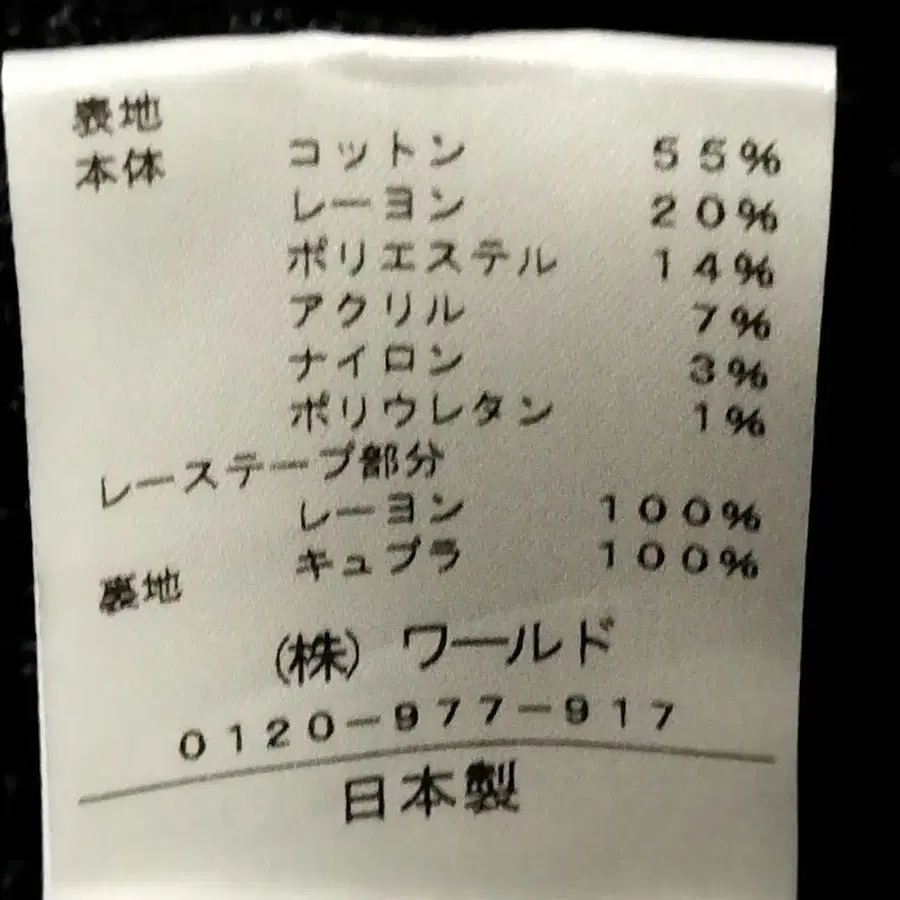 表地
本体 コットン 55%
レーヨン 20%
ポリエステル 14%
アクリル 7%
ナイロン 3%
ポリウレタン 1%
レーステープ部分
レーヨン 100%
裏地 キュプラ 100%
(株) ワールド
0120-977-917
日本製